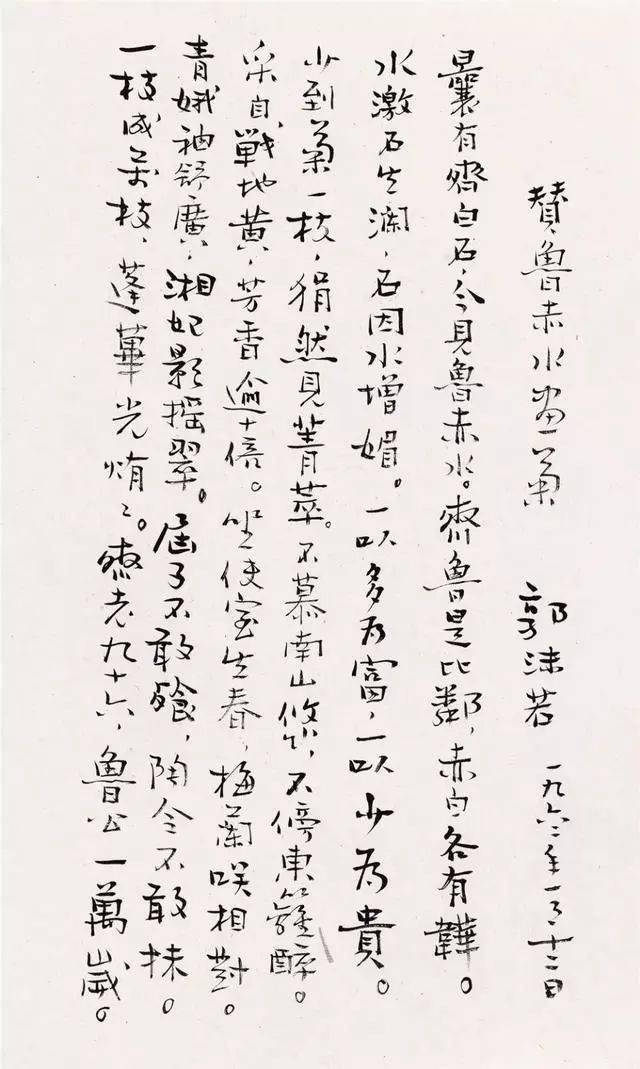 贊魯赤水畫菊 郭沫若 一九六二年一月十二日
曩有齊白石，今見魯赤水。齊魯是比鄰，赤白各有韡。
水激石生澜，石因水增媚。一以多为富，一以少为貴。
少到菊一枝，狷然見菁萃。不慕南山悠，不傍東籬醉。
采自戰地黄，芳香逾十倍。坐使室生春，梅蘭咲相對。
青娥袖舒廣，湘妃影摇翠。屈子不敢飱，陶令不敢抹。
一枝成万枝，蓬蓽光焴々。齊老九十六，魯公一萬歲。